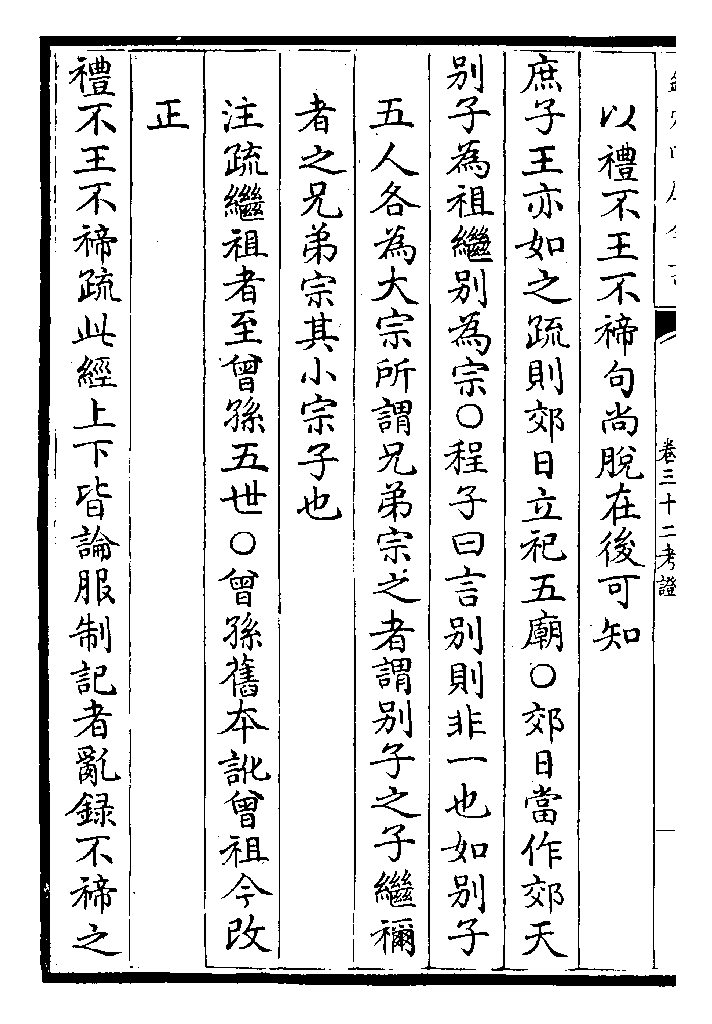 以禮不王不禘句尚脫在後可知
庶子王亦如之疏則郊日立祀五廟○郊日當作郊天
別子為祖繼別為宗○程子曰言別則非一也如別子
五人各為大宗所謂兄弟宗之者謂別子之子繼禰
者之兄弟宗其小宗子也
注疏繼祖者至曾孫五世○曾孫舊本訛曾祖今改
正
禮不王不禘疏此經上下皆論服制記者亂録不禘之
卷三十二考證